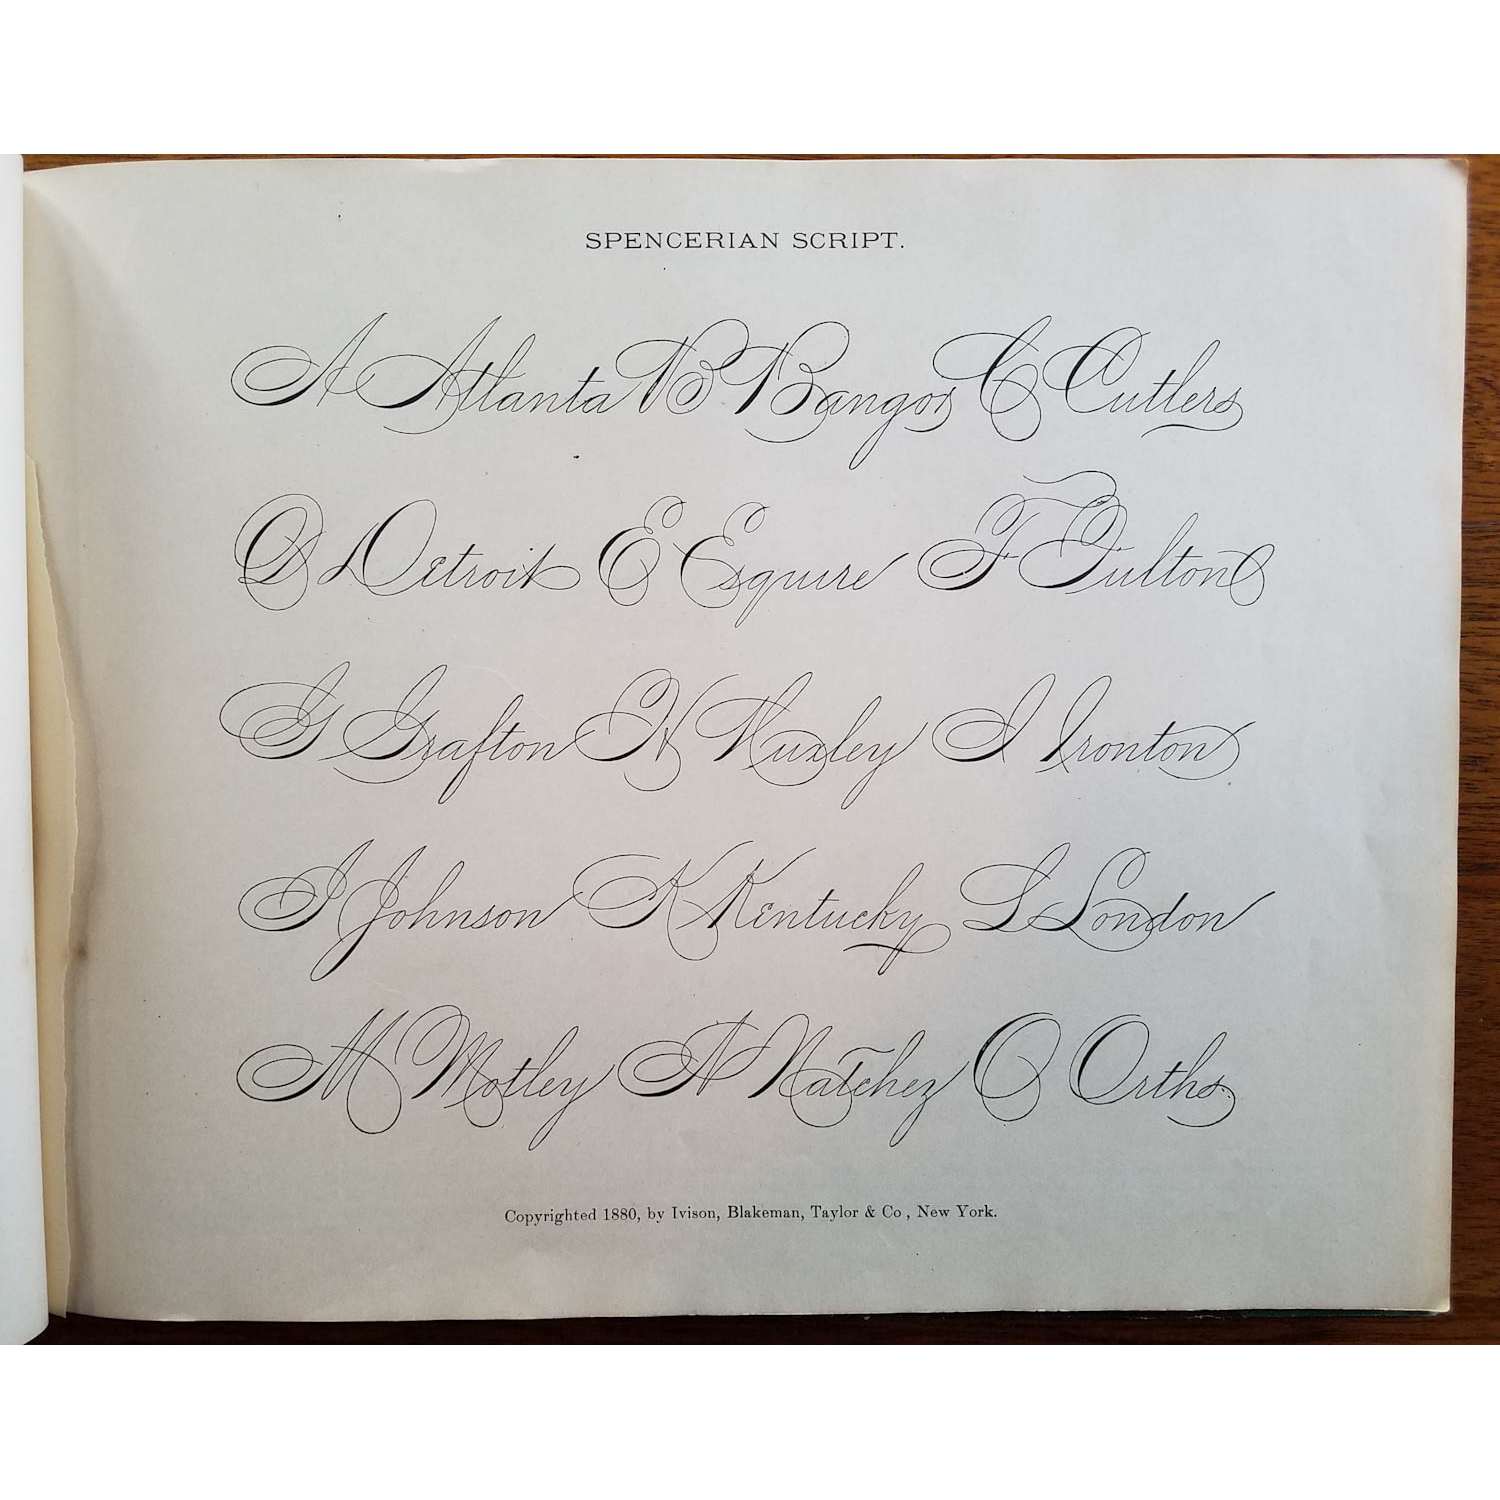 SPENCERIAN SCRIPT.
A Atlanta B Bangor C Cutlers
D Detroit E Esquire F Fulton
G Grafton H Huxley I Ironton
J Johnson K Kentucky L London
M Motley N Natchez O Orths.
Copyrighted 1880, by Ivison, Blakeman, Taylor & Co, New York.